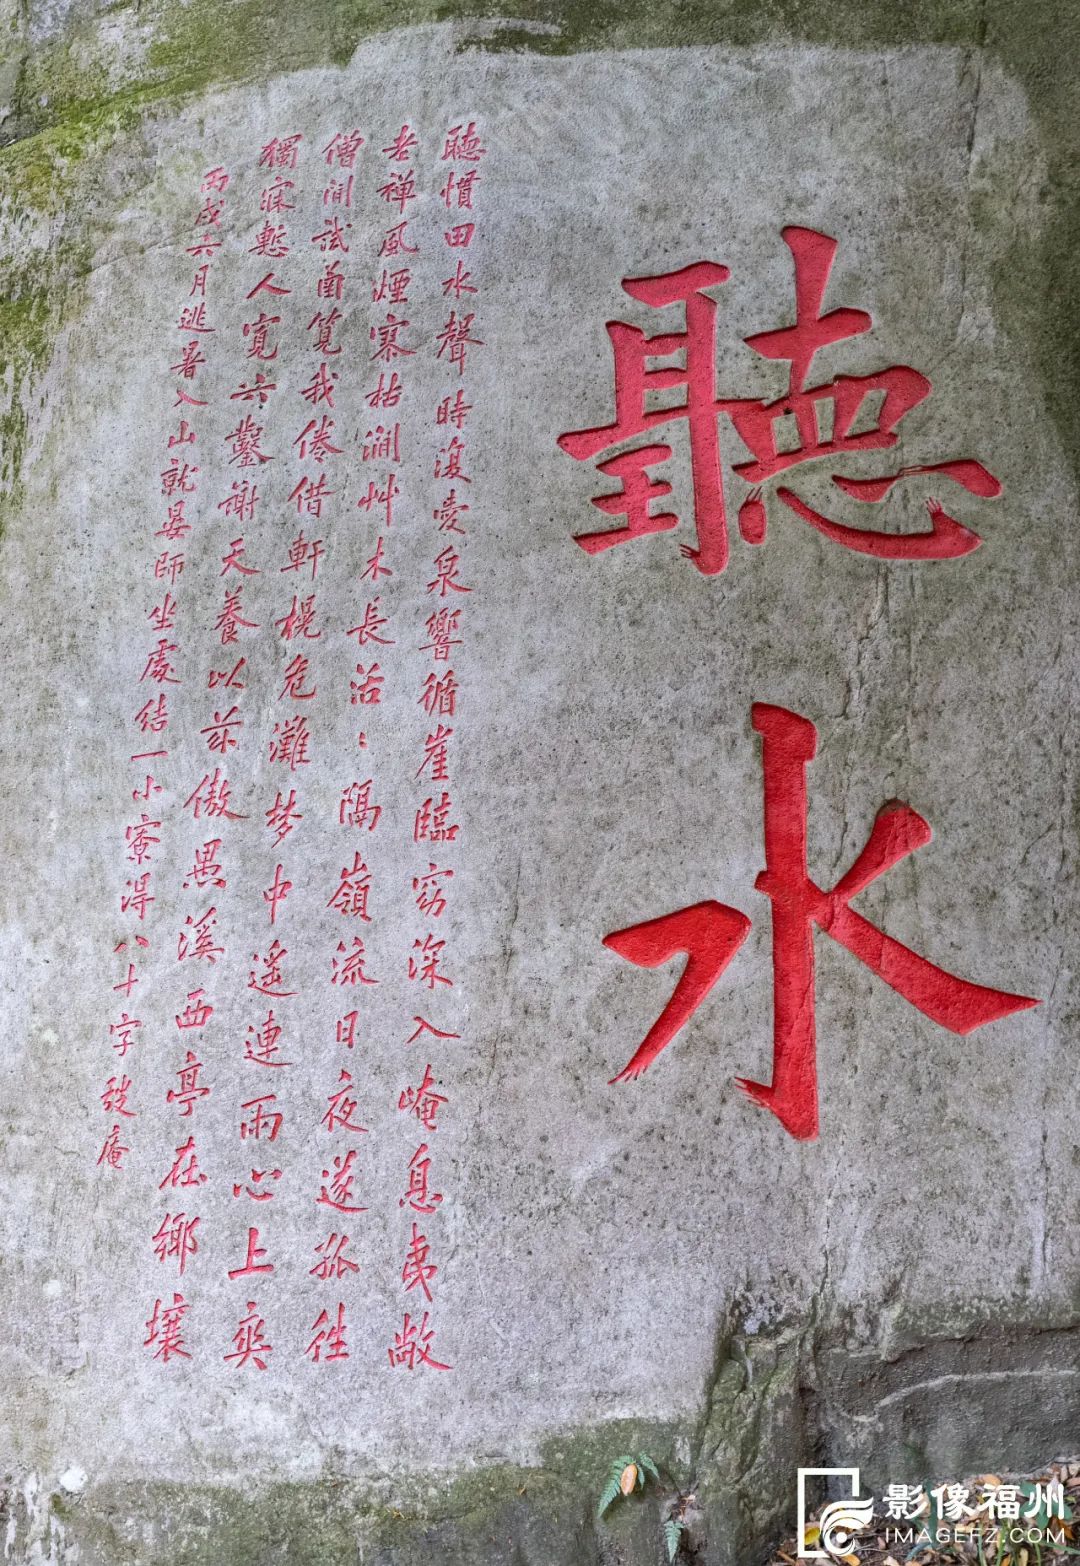 聽水
聽慣田水聲時復愛泉響循崖臨窈深入崦息夷敞
老禪風煙寮枯澗艸木長活〻隔嶺流日夜遂孤往
僧閒試筧我倦借軒榥危灘梦中遙連雨心上爽
獨寐慙人寬六鑿謝天養以茲傲愚溪西亭在鄉壤
丙戌六月逃暑入山就晏師坐處結一小寮得八十字弢庵
影像福州
IMAGEFZ.COM